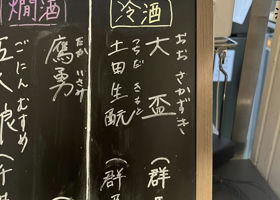 冷酒
おおさかずき
大盃(群
つちだ きもと
土田生酛(群
燗酒
たかいさみ
鷹勇
ごにんむすめ
五人娘(千